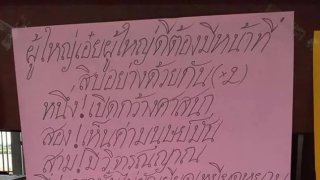 ผู้ใหญ่เอ๋ยผู้ใหญ่ดีต้องมีหน้าที่
สิบอย่างด้วยกัน (×2)
หนึ่ง! เปิดกว้างศาสนา
สอง! เห็นค่ามนุษย์มั่น
สาม! มีวิจารณญาณ